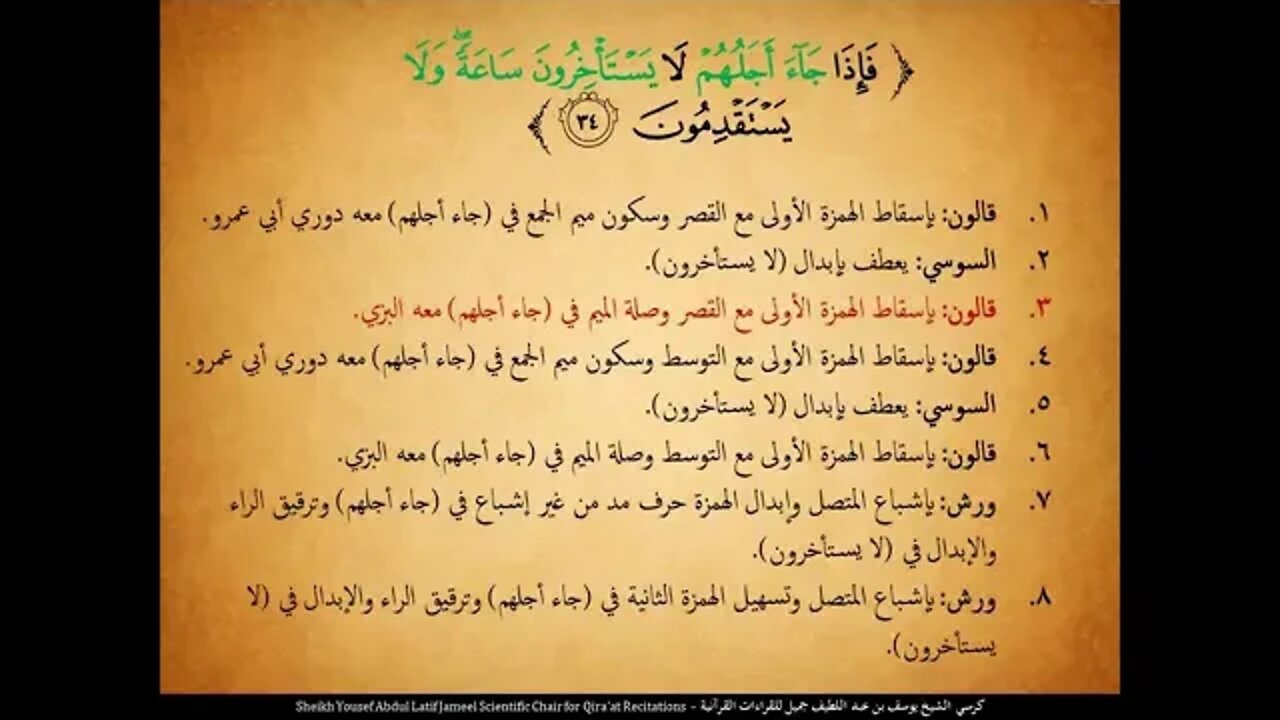 ﴿ فَإِذَا جَآءَ أَجَلُهُمْ لَا يَسْتَأْخِرُونَ سَاعَةًۖ وَلَا
يَسْتَقْدِمُونَ ٣٤ ﴾
١. قالون: بإسقاط الهمزة الأولى مع القصر وسكون ميم الجمع في (جاء أجلهم) معه دوري أبي عمرو.
٢. السوسي: يعطف بإبدال (لا يستأخرون).
٣. قالون: بإسقاط الهمزة الأولى مع القصر وصلة الميم في (جاء أجلهم) معه البزي.
٤. قالون: بإسقاط الهمزة الأولى مع التوسط وسكون ميم الجمع في (جاء أجلهم) معه دوري أبي عمرو.
٥. السوسي: يعطف بإبدال (لا يستأخرون).
٦. قالون: بإسقاط الهمزة الأولى مع التوسط وصلة الميم في (جاء أجلهم) معه البزي.
٧. ورش: بإشباع المتصل وإبدال الهمزة حرف مد من غير إشباع في (جاء أجلهم) وترقيق الراء
والإبدال في (لا يستأخرون).
٨. ورش: بإشباع المتصل وتسهيل الهمزة الثانية في (جاء أجلهم) وترقيق الراء والإبدال في (لا
يستأخرون).
كرسي الشيخ يوسف بن عبد اللطيف جميل للقراءات القرآنية - Sheikh Yousef Abdul Latif Jameel Scientific Chair for Qira'at Recitations